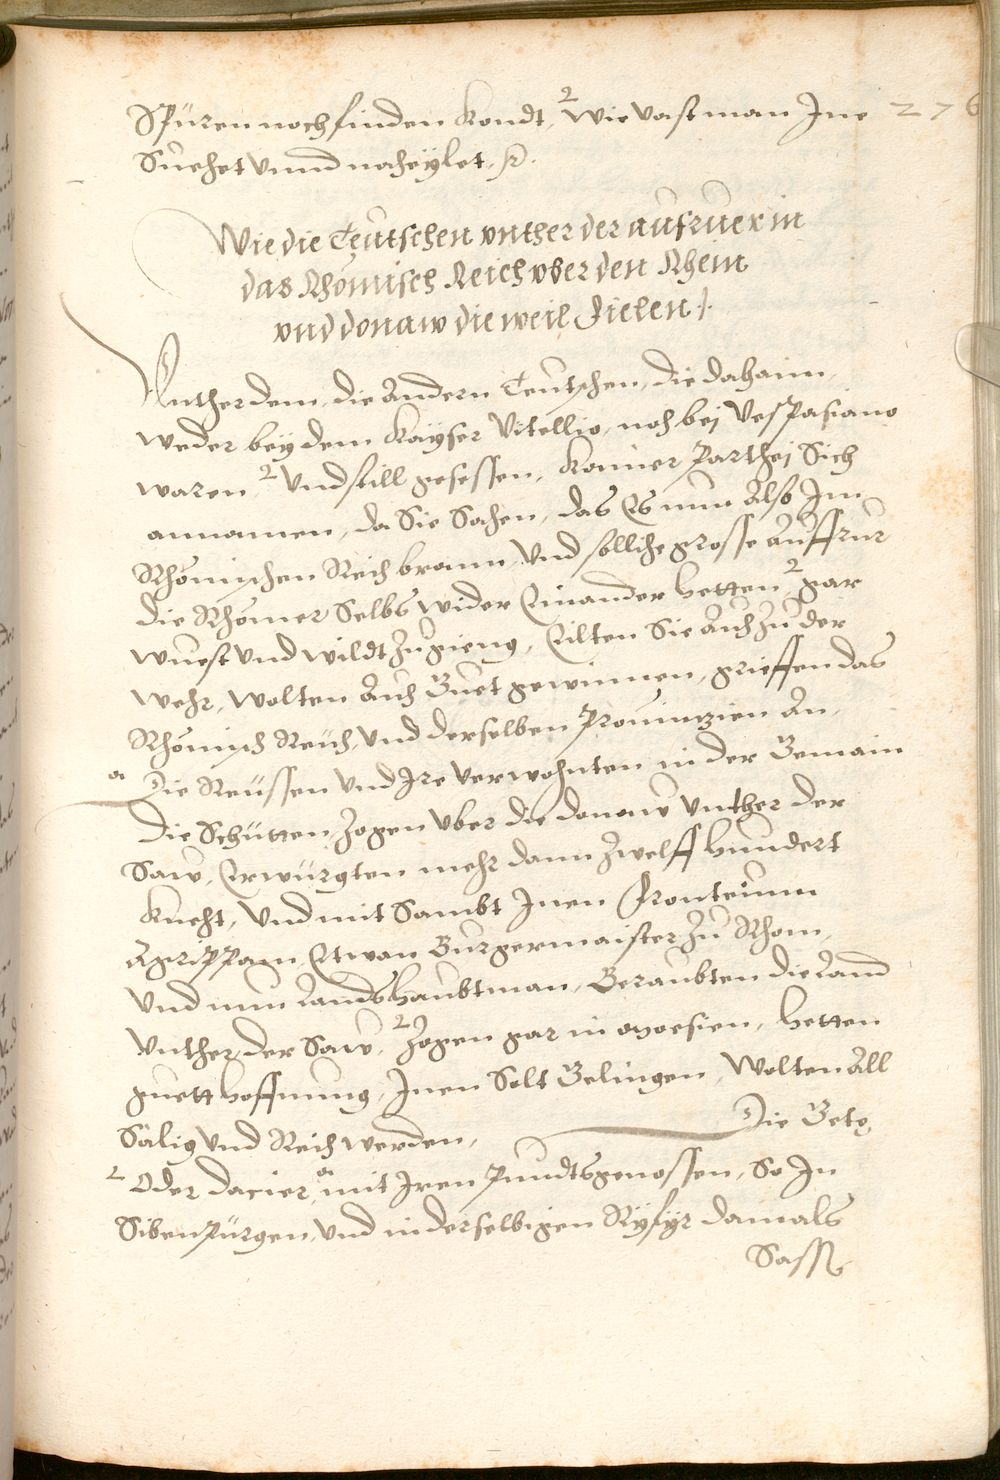 Spüren noch finden kondt, wie vast man Jne 276
Suechet vnnd nacheylet. 
Wie die Teutschen vnther der aufruer in
das Rhömisch Reich vber den Rhein
vnd donaw die weil fielen
Vnther dem, die Andern Teutschen, die dahaim
weder bey dem Kayser Vitellio, noch bei Vespasiano
waren, Vnd still gesessen, kainer Parthej Sich
annamen, da Sie Sachen, das Es nun Also Jm
Rhömischen Reich brann, Vnd solliche grosse Auffrur
die Rhömer Selbs wider Einander hetten, gar
wuest vnd wildt zugieng, Eilten Sie Auch zu der
wehr, wolten Auch Guet gewinnen, grieffen das
Rhömisch Reich, vnd derselben Prouintzien An,
Die Reüssen vnd Jre verwohnten in der Gemain
die Schütten, zogen vber die donaw vnther der
Saw, Erwürgten mehr dann zwelff hundert
knecht, Vnd mit Sambt Jnen Fronteium
Agrippam, Etwan Burgermaister zu Rhom,
Vnd nun Landshaubtman, Beraubten die Land
vnther der Saw, zogen gar in Moesien, hetten
guett hoffnung, Jnen Solt Gelingen, Wolten All
Sälig vnd Reich werden, Die Gete
Oder dacier, mit Jren Pundtsgenossen, So Jn
Siben Pürgen, vnd in derselbigen Ryfyr damals
Sassen